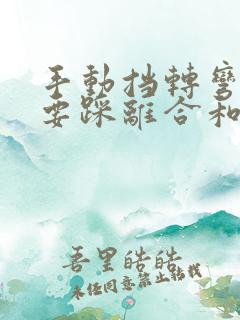 手動挡轉彎
要踩離合和
吾里皓皓
未经同意禁止转载